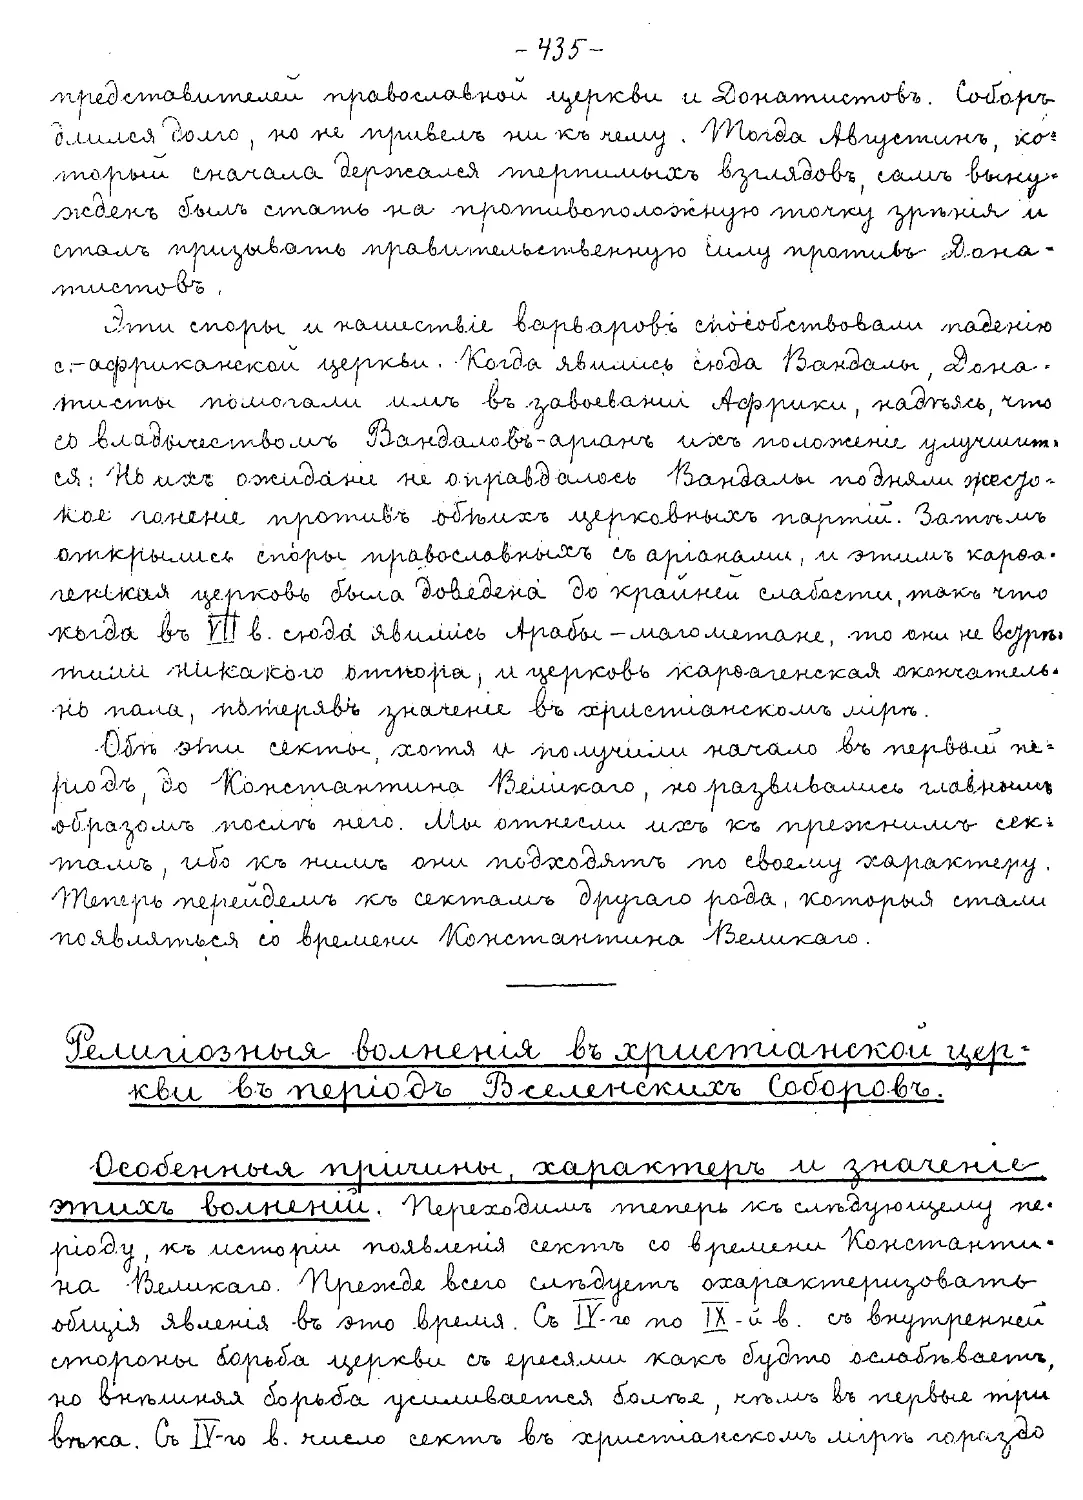 -435-
представителей православной церкви и Донатистовъ. Соборъ
длился долго, но не привелъ ни къ чему. Тогда Августинъ, ко-
торый сначала держался терпимыхъ взглядовъ, самъ выну-
жденъ былъ стать на противоположную точку зрѣнія и
сталъ призывать правительственную силу противъ Дона-
тистовъ.
Эти споры и нашествіе варваровъ способствовали паденію
с.-африканской церкви. Когда явились сюда Вандалы, Дона-
тисты помогали имъ въ завоеваніи Африки, надѣясь, что
со владычествомъ Вандаловъ-аріанъ ихъ положеніе улучшит-
ся: Но ихъ ожиданіе не оправдалось Вандалы подняли жесто-
кое гоненіе противъ обѣихъ церковныхъ партій. Затѣмъ
открылись споры православныхъ съ аріанами, и этимъ карѳа-
генская церковь была доведена до крайней слабости, такъ что
когда въ VII в. сюда явились Арабы – магометане, то они не встрѣ-
тили никакого отпора, и церковь карѳагенская окончатель-
но пала, потерявъ значеніе въ христіанскомъ мірѣ.
Обѣ эти секты, хотя и получили начало въ первый пе-
ріодъ, до Константина Великаго, но развивались главнымъ
образомъ послѣ него. Мы отнесли ихъ къ прежнимъ сек-
тамъ, ибо къ нимъ они подходятъ по своему характеру.
Теперь перейдемъ къ сектамъ другаго рода, которыя стали
появляться со времени Константина Великаго.
Религіозныя волненія въ христіанской цер-
кви въ періодъ Вселенскихъ Соборовъ.
Особенныя причины, характеръ и значеніе
этихъ волненій. Переходимъ теперь къ слѣдующему пе-
ріоду, къ исторіи появленія сектъ со времени Константи-
на Великаго. Прежде всего слѣдуетъ охарактеризовать
общія явленія въ это время. Съ IV-го по IX-й в. съ внутренней
стороны борьба церкви съ ересями какъ будто ослабѣваетъ,
но внѣшняя борьба усиливается болѣе, чѣмъ въ первые три
вѣка. Съ IV-го в. число сектъ въ христіанскомъ мірѣ гораздо